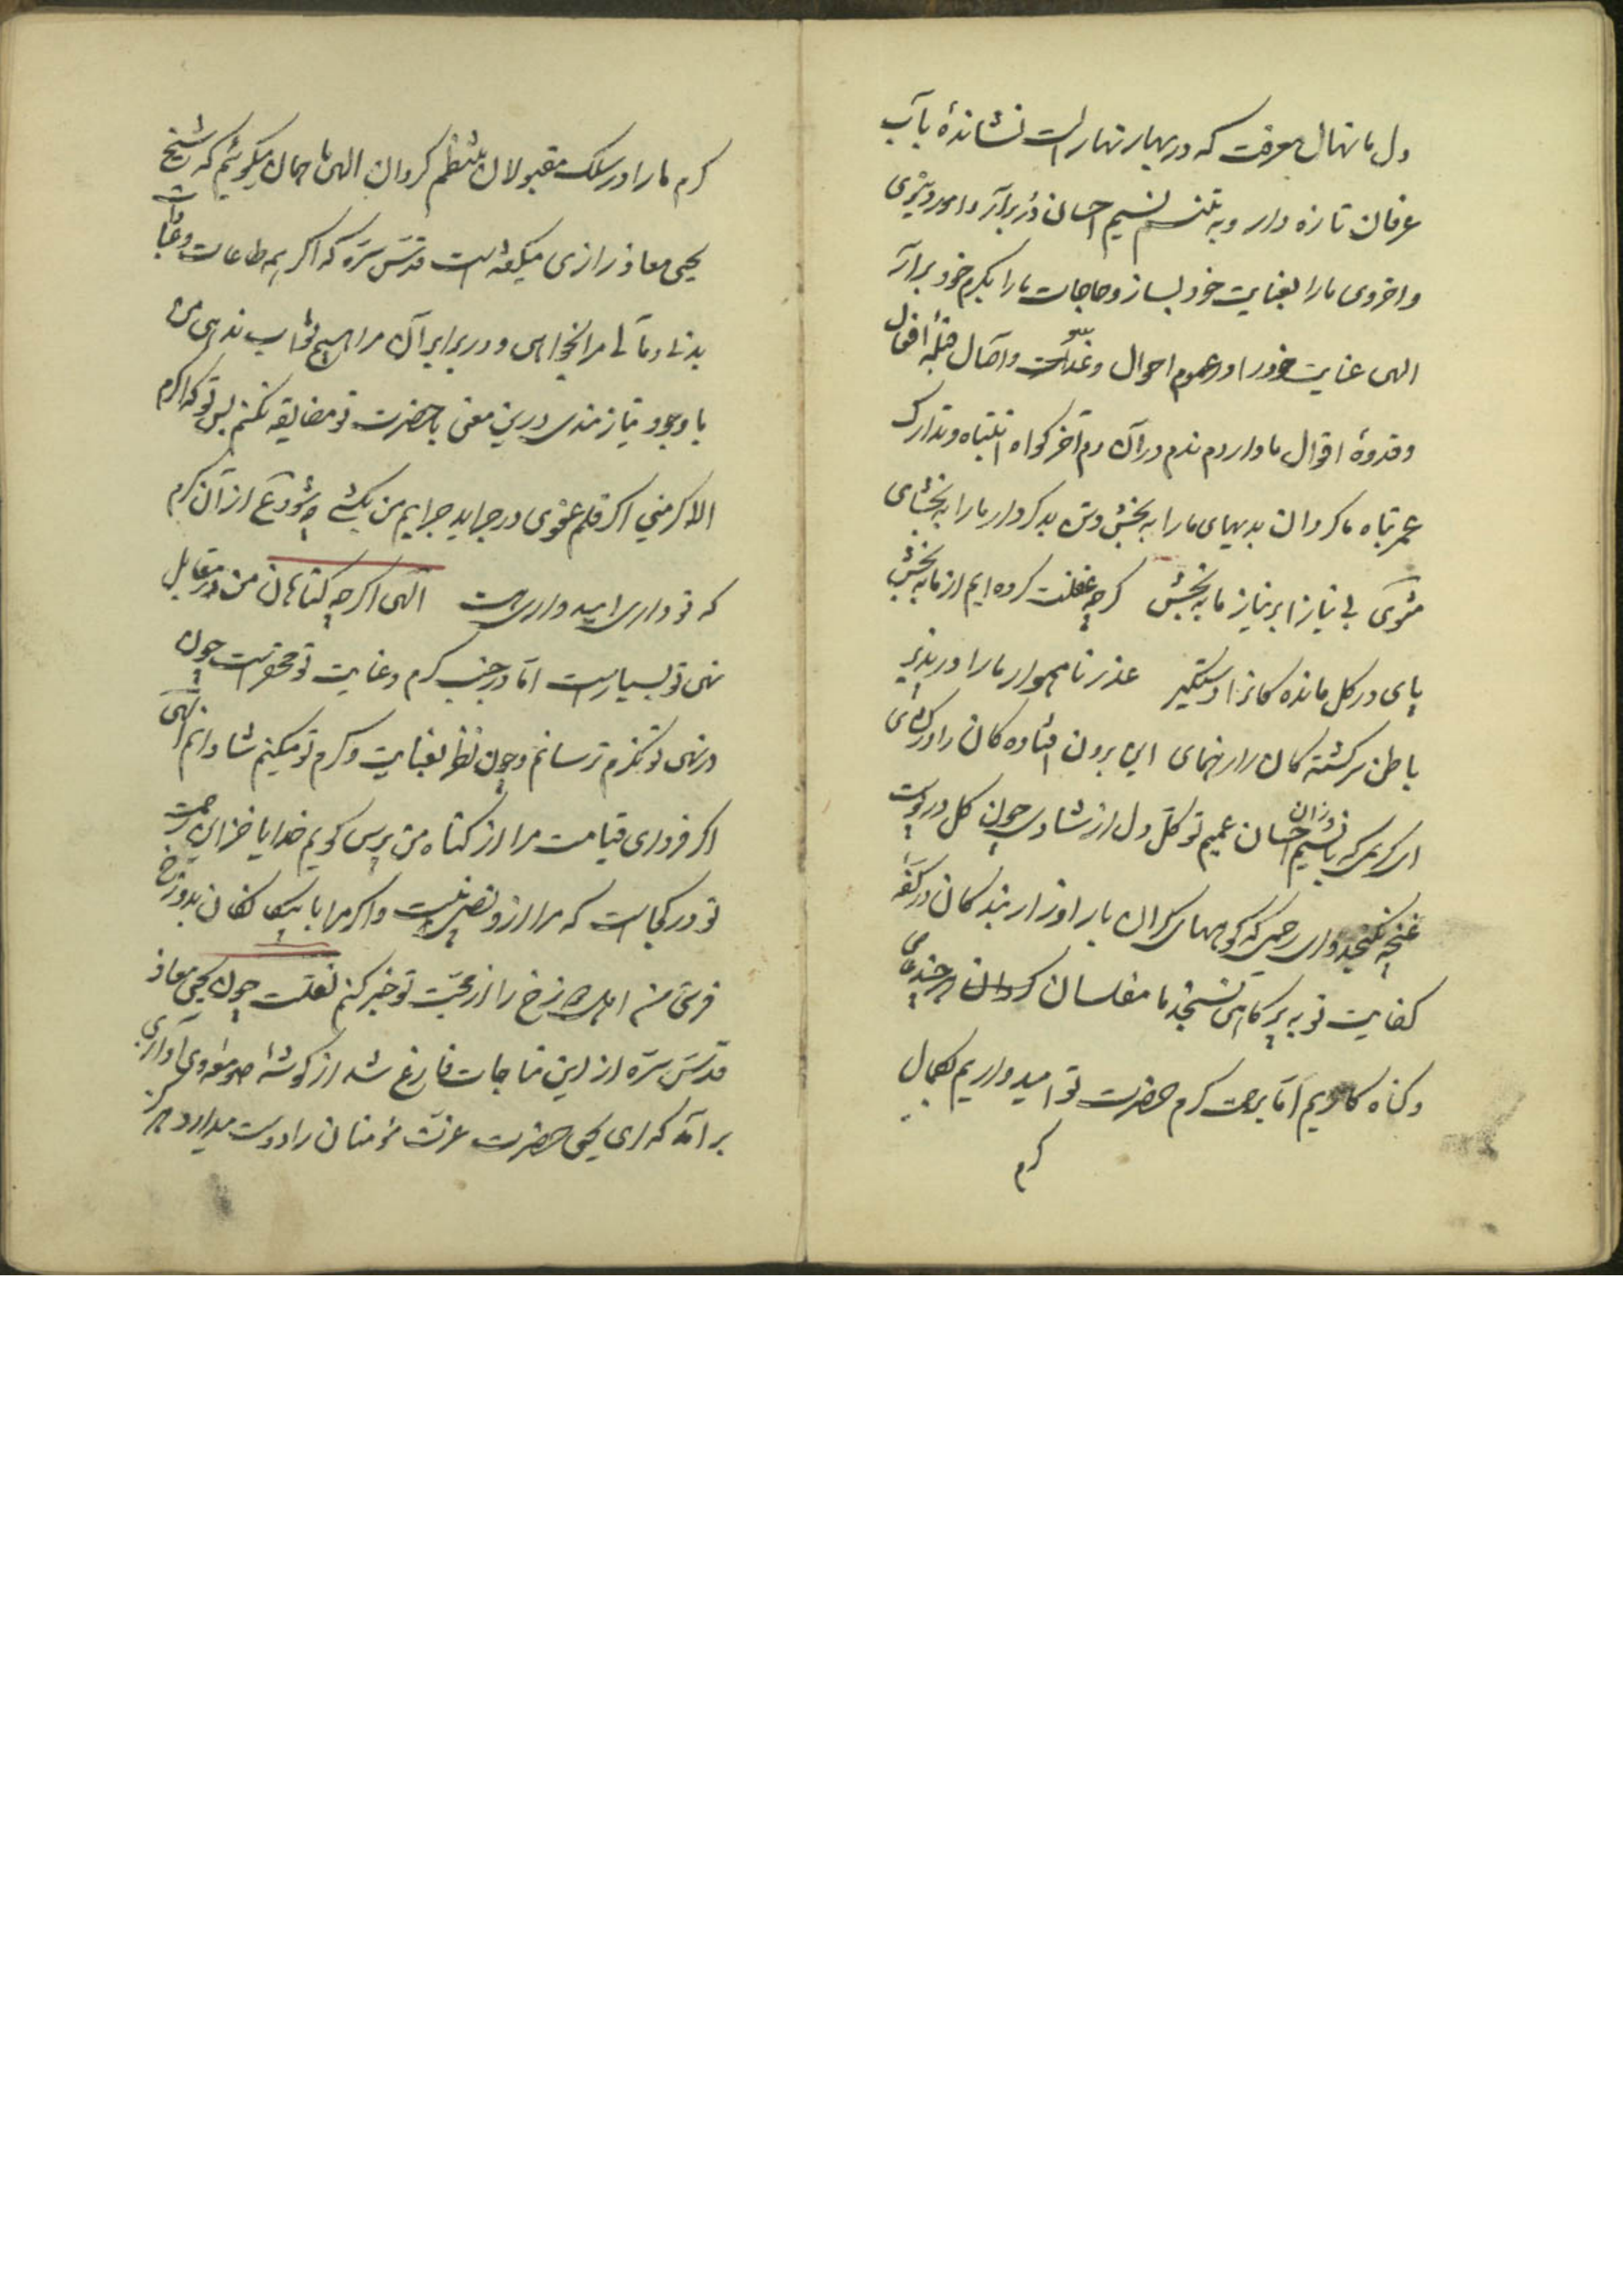 دل ما نهال معرفت که در بهار نهار است نشاندهٔ بآب
عرفان تازه دار و به تنسم نسیم احسان در برآر و امور دنیوی
و اخروی ما را بعنایت خود بساز و حاجات ما را بکرم خود برآر
الهی عنایت خود را در عموم احوال و غدو و آصال قبلهٔ افعال
و قدوهٔ اقوال ما دار دم ندم در آن دم آخر کواه انتباه و تدارک
عمر تباه ما کردان بدیهای ما را به بخش وتن بدکردار ما را به بخشای
مثنوی بی نیازا بر نیاز ما به بخش کرچه غفلت کرده ایم از ما به بخش
پای در کل مانده کانرا دستکیر عذر ناهموار ما را در پذیر
باطن سرکشته کان را رهنمای این برون افتاده کان را در کشای
ای کریمی که بانسیم وزان احسان عمیم تو کل دل از شادی چون کل در پوست
غنچه نکنجد و ای رحیمی که کوههای کران بار اوزار بندکان در کفهٔ
کفایت تو به پر کاهی نسنجد ما مفلسان هرچند عاصی
و کناه کاریم اما برحمت کرم حضرت تو امیدواریم بکمال
کرم
کرم ما را در سلک مقبولان منتظم کردان الهی ما همان میکوئیم که شیخ
یحیی معاذ رازی میکفته است قدس سره که اکر همه طاعات و عبادات
بدنی و مالی مرا نخواهی و در برابر آن مرا هیچ ثواب ندهی من
با وجود نیازمندی درین معنی با حضرت تو مضایقه نکنم پس تو که اکرم
الاکرمینی اکر قلم عفوی در جراید جرایم من بکشی چه شود ع از آن کرم
که تو داری امیدواری هست الهی اکرچه کناهان من در مقابل
نهی تو بسیارست اما در جنب کرم و عنایت تو محقرست چون
در نهی تو نکرم ترسانم و چون نظر بعنایت و کرم تو میکنم شادانم الهی
اکر فردای قیامت مرا از کناه من پرسی کویم خدایا خزاین رحمت
تو در کجاست که مرا از و نصیب نیست و اکر مرا با کفان بدوزخ
فرستی من اهل دوزخ را از محبت تو خبر کنم نقلست چون یحیی معاذ
قدس سره از این مناجات فارغ شد از کوشهٔ صومعه وی آوازی
برآمد که ای یحیی حضرت عزت مؤمنان را دوست میدارد هرکز